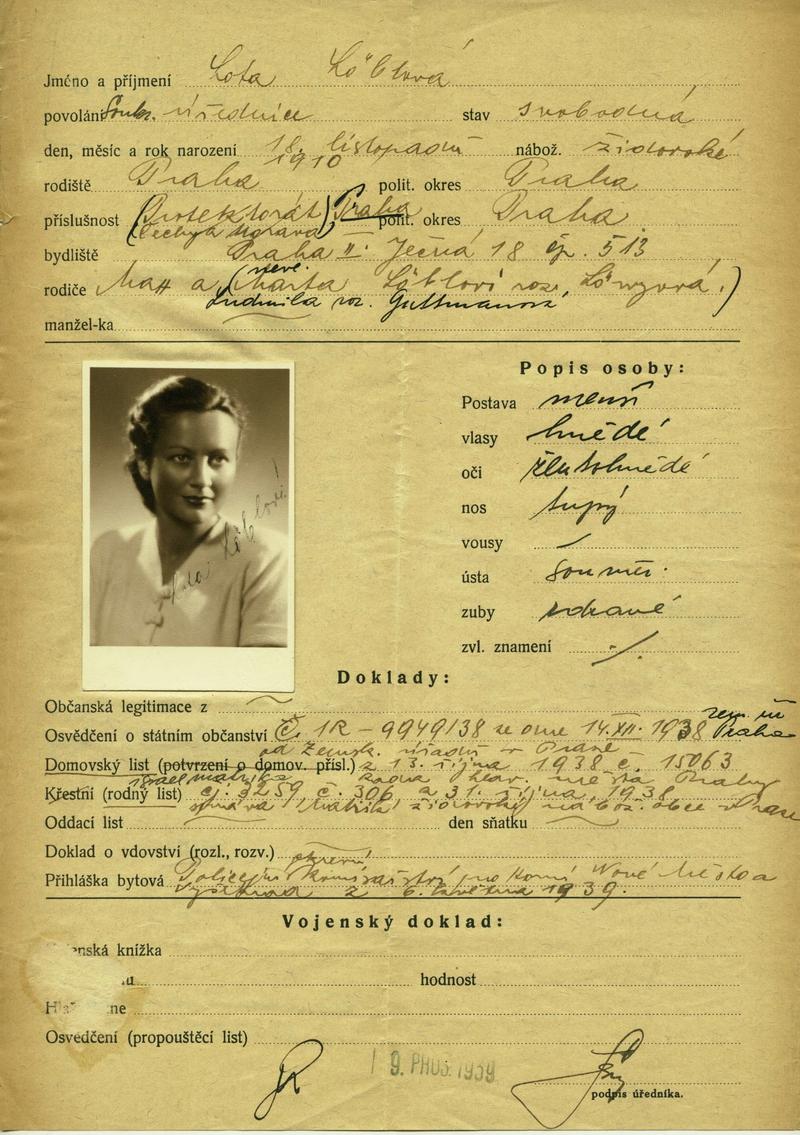 Jméno a příjmení Lota Löblová
povolání Soukr. úřednice stav svobodná
den, měsíc a rok narození 18. listopadu 1910 nábož. židovské
rodiště Praha polit. okres Praha
příslušnost (Protektorát Čechy a Morava) Praha polit. okres Praha
bydliště Praha II. Ječná 18 čp. 513
rodiče Max a (Marta Löbloví roz. Löwyová.)
Ludmila roz. Guttmannová
manžel-ka
Popis osoby:
Postava menší
vlasy hnědé
oči žlutohnědé
nos tupý
vousy
ústa souměr.
zuby zdravé
zvl. znamení
Lota Löblová
Doklady:
Občanská legitimace z
Osvědčení o státním občanství Č. 1R - 9949/38 ze dne 14.XII.1938 zem. úř. Praha
od Zemsk. úřadu v Praze
Domovský list (potvrzení o domov. přísl.) z 13. října 1938 č. 15063
hlav. města Prahy
Křestní (rodný list) čj. 3259 č. 306 z 31. října 1938
židovské nábož. obce v Praze
Oddací list den sňatku
Doklad o vdovství (rozl., rozv.)
Přihláška bytová Policejní komisařství pro horní Nové Město a
Vyšehrad z 6. května 1939.
Vojenský doklad:
enská knížka
u hodnost
H ne
Osvedčení (propouštěcí list)
19. PROS. 1939
podpis úředníka.